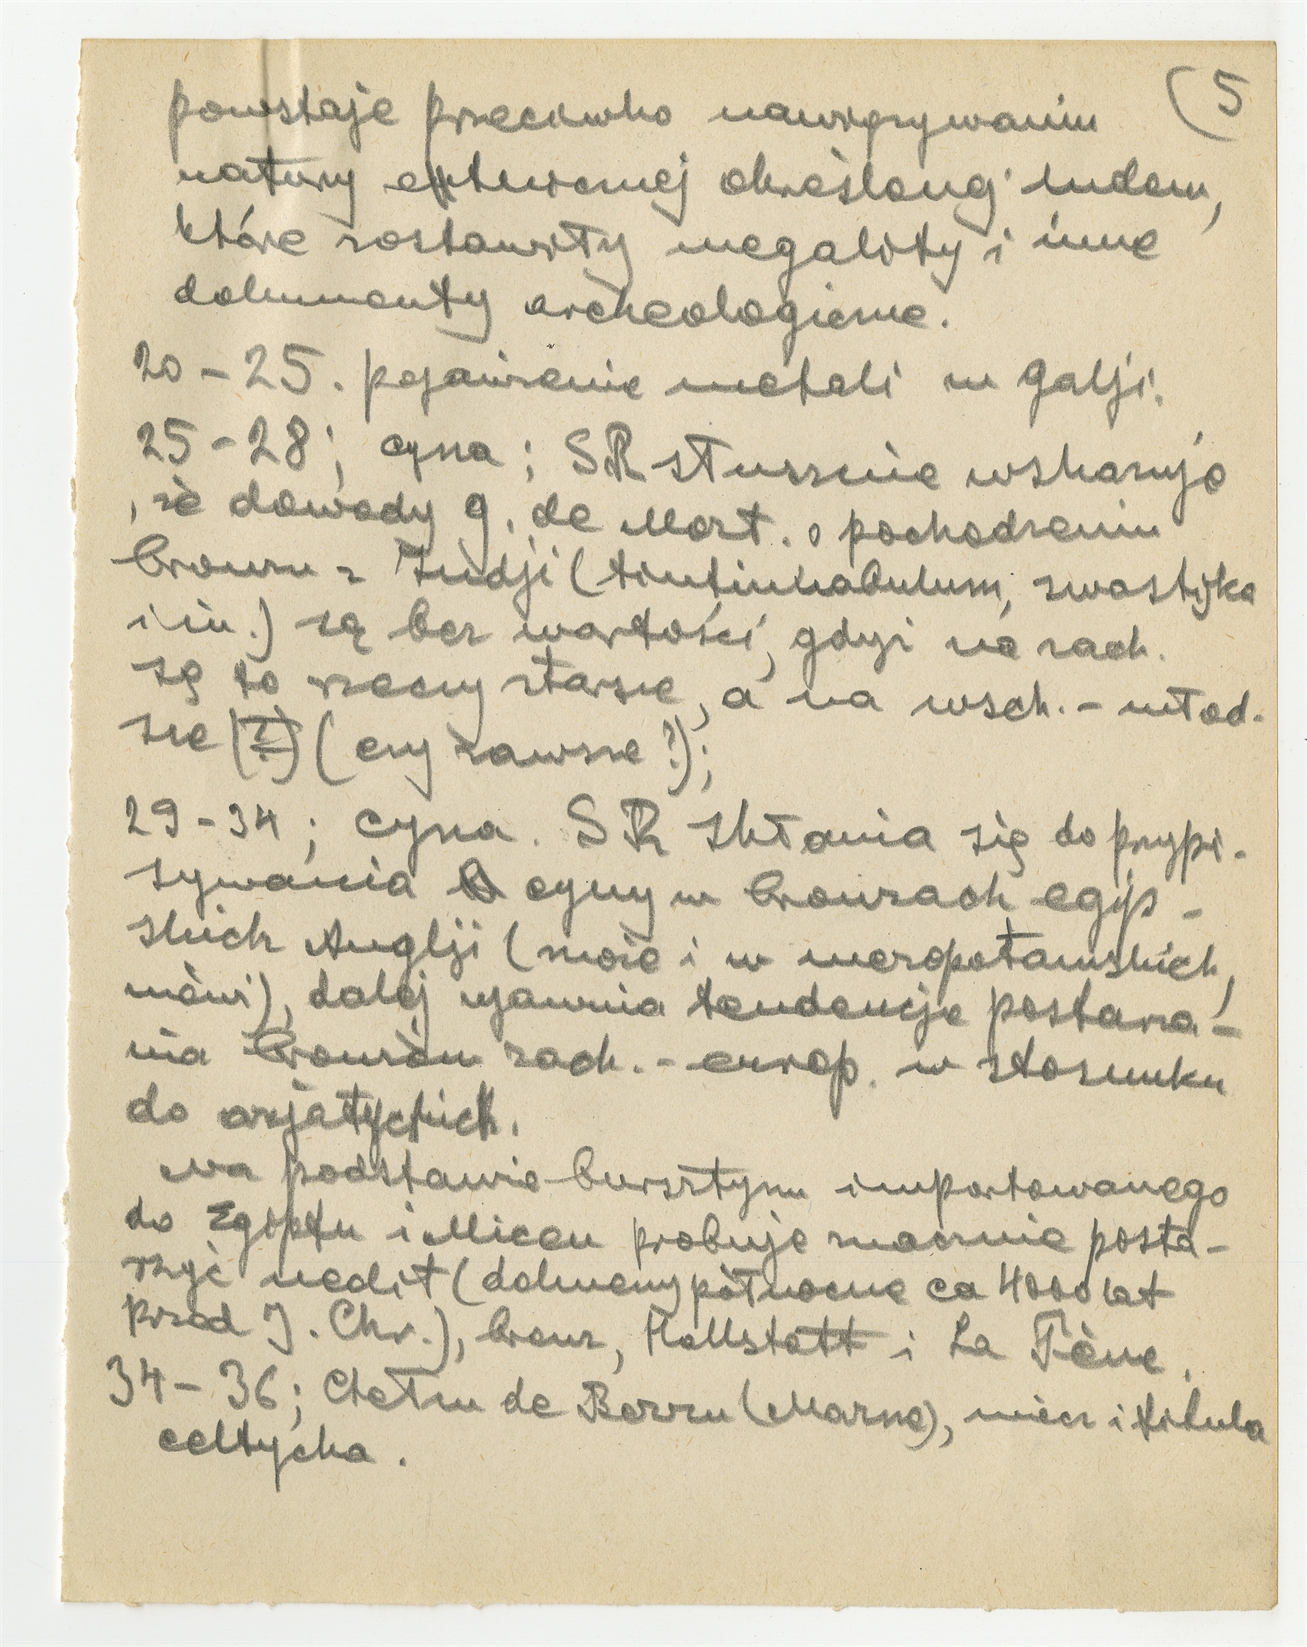 (5
powstaje przeciwko nawiązywaniu
natury etnicznej określonej ludom,
które zostawiły megality i inne
dokumenty archeologiczne.
20–25. pojawienie metali w Galji.
25–28; cyna; SR słusznie wskazuje
, że dowody G. de Mort. o pochodzeniu
bronzu z Indji (tintinnabulum, swastyka
i in.) są bez wartości, gdyż na zach.
są to rzeczy starsze, a na wsch. – młod-
sze (?) (czy zawsze?);
29–34; cyna. SR skłania się do przypi-
sywania cyny w bronzach egip-
skich Anglji (może i w mezopotamskich,
mówi), dalej ujawnia tendencje postarza-
nia bronzów zach.-europ. w stosunku
do azjatyckich.
Na podstawie bursztynu importowanego
do Egiptu i Micen probuje znacznie posta-
rzyć neolit (dolmeny północne ca 4000 lat
przed J. Chr.), bronz, Hallstatt i La Tène.
34–36; Chełm de Berru (Marne), miecz i fibula
celtycka.